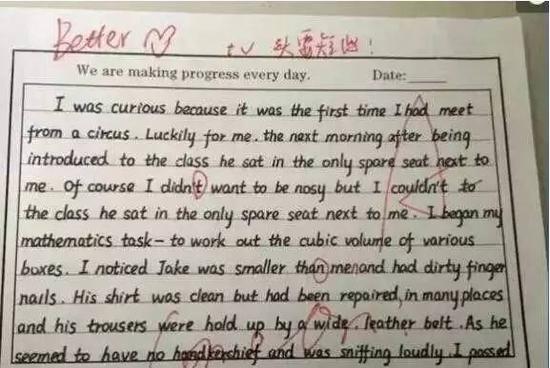 Better t 头要短些!
We are making progress every day. Date:
I was curious because it was the first time I had meet
from a circus. Luckily for me. the next morning after being
introduced to the class he sat in the only spare seat next to
me. Of course I didn't want to be nosy but I couldn't to
the class he sat in the only spare seat next to me. I began my
mathematics task - to work out the cubic volume of various
boxes. I noticed Jake was smaller than menand had dirty finger
nails. His shirt was clean but had been repaired, in many places
and his trousers were hold up by a wide. leather belt. As he
seemed to have no handkerchief and was sniffing loudly. I passed